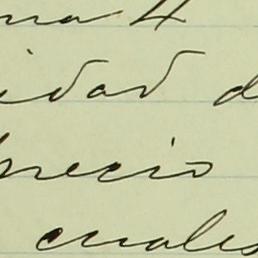 na 4
idad d
precio
cuales